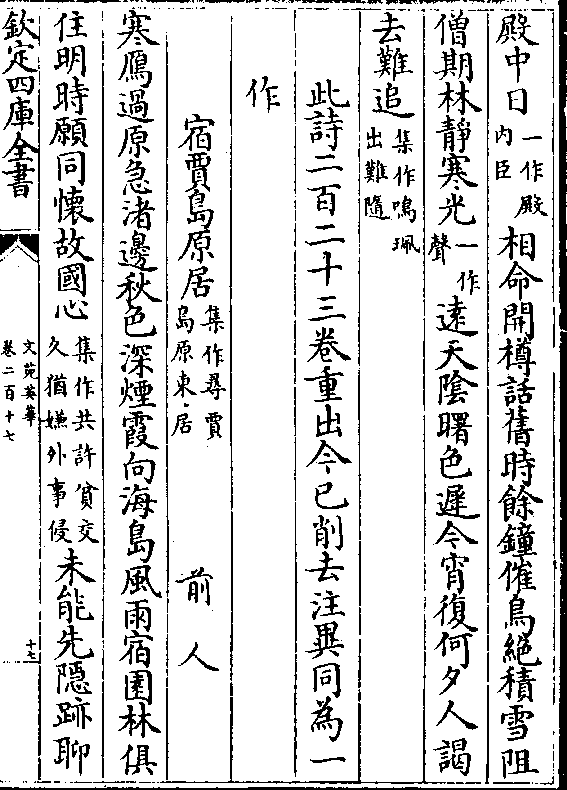 殿中日一作殿内臣相命開樽話舊時餘鐘催鳥絕積雪阻
僧期林靜寒光一作聲遠天陰曙色遲今宵復何夕人謁
去難追集作鳴珮出難隨
此詩二百二十三卷重出今已削去注異同為一
作
宿賈島原居集作尋賈島原東居 前人
寒鴈過原急渚邊秋色深煙霞向海島風雨宿園林俱
住明時願同懷故國心集作共許貧交久猶嫌外事侵未能先隱跡聊
欽定四庫全書
文苑英華
卷二百十七
十七